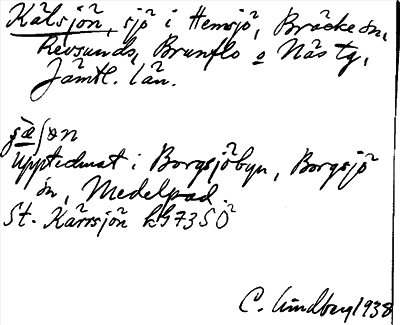 Kälsjön, sjö i Hemsjö, Bräcke sn,
Revsunds, Brunflo o Näs tg,
Jämtl. län.
Upptecknat i Borgsjöbyn, Borgsjö
sn, Medelpad.
St. Kärrsjön kG73SÖ
C. Lindberg 1938